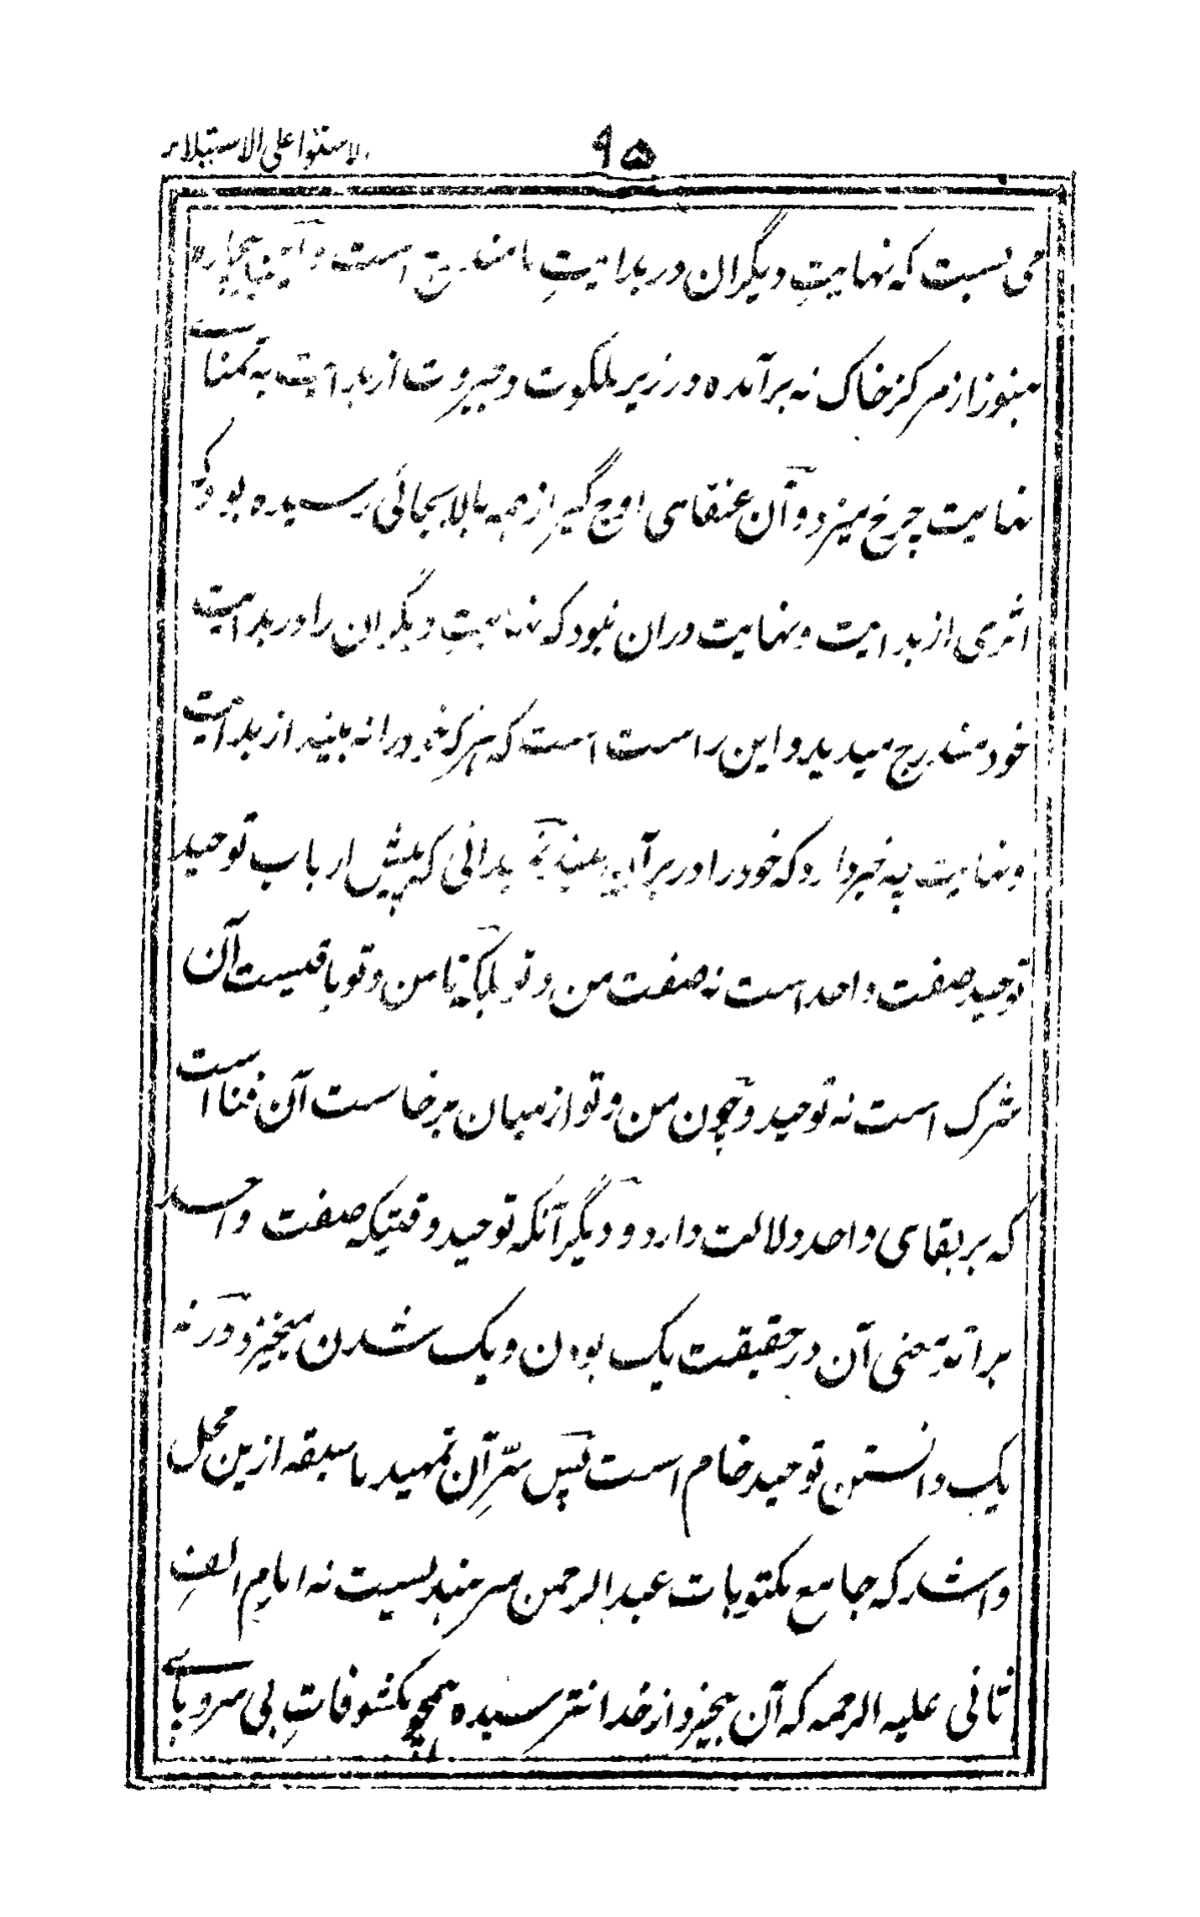 ۹۵
الاستواء علی الاستیلاء
می نسبت که نهایتِ دیگران در بدایتِ ما مندرج است و این بیچاره
هنوز از مرکز خاک نه برآمده در زیر ملکوت و جبروت از بدایت به تمنائے
نهایت چرخ میزد و آن عنقای اوج گیر از همه بالا بجائی رسیده بود که
اثری از بدایت و نهایت دران نبود که نهایتِ دیگران را در بدایت
خود مندرج میدید و این راست است که هر که خود را نه بیند از بدایت
و نهایت چه خبر دارد که خود را در برآن بیند نمیدانی که پیش ارباب توحید
توحید صفت واحد است نه صفت من و تو بلکه تا من و تو باقیست آن
شرک است نه توحید و چون من و تو از میان برخاست آن فنا است
که بر بقای واحد دلالت دارد و دیگر آنکه توحید وقتیکه صفت واحد
برآمد معنی آن در حقیقت یک بودن و یک شدن میخیزد ورنه
یک دانستن توحید خام است پس سرّ آن تمهید ما سبقه ازین محل
وا شد که جامع مکتوبات عبدالرحمن سرهندیست نه امامِ الفِ
ثانی علیه الرحمه که آن بیخبر و از خدا نترسیده همچو مکشوفاتِ بی سر و پائے